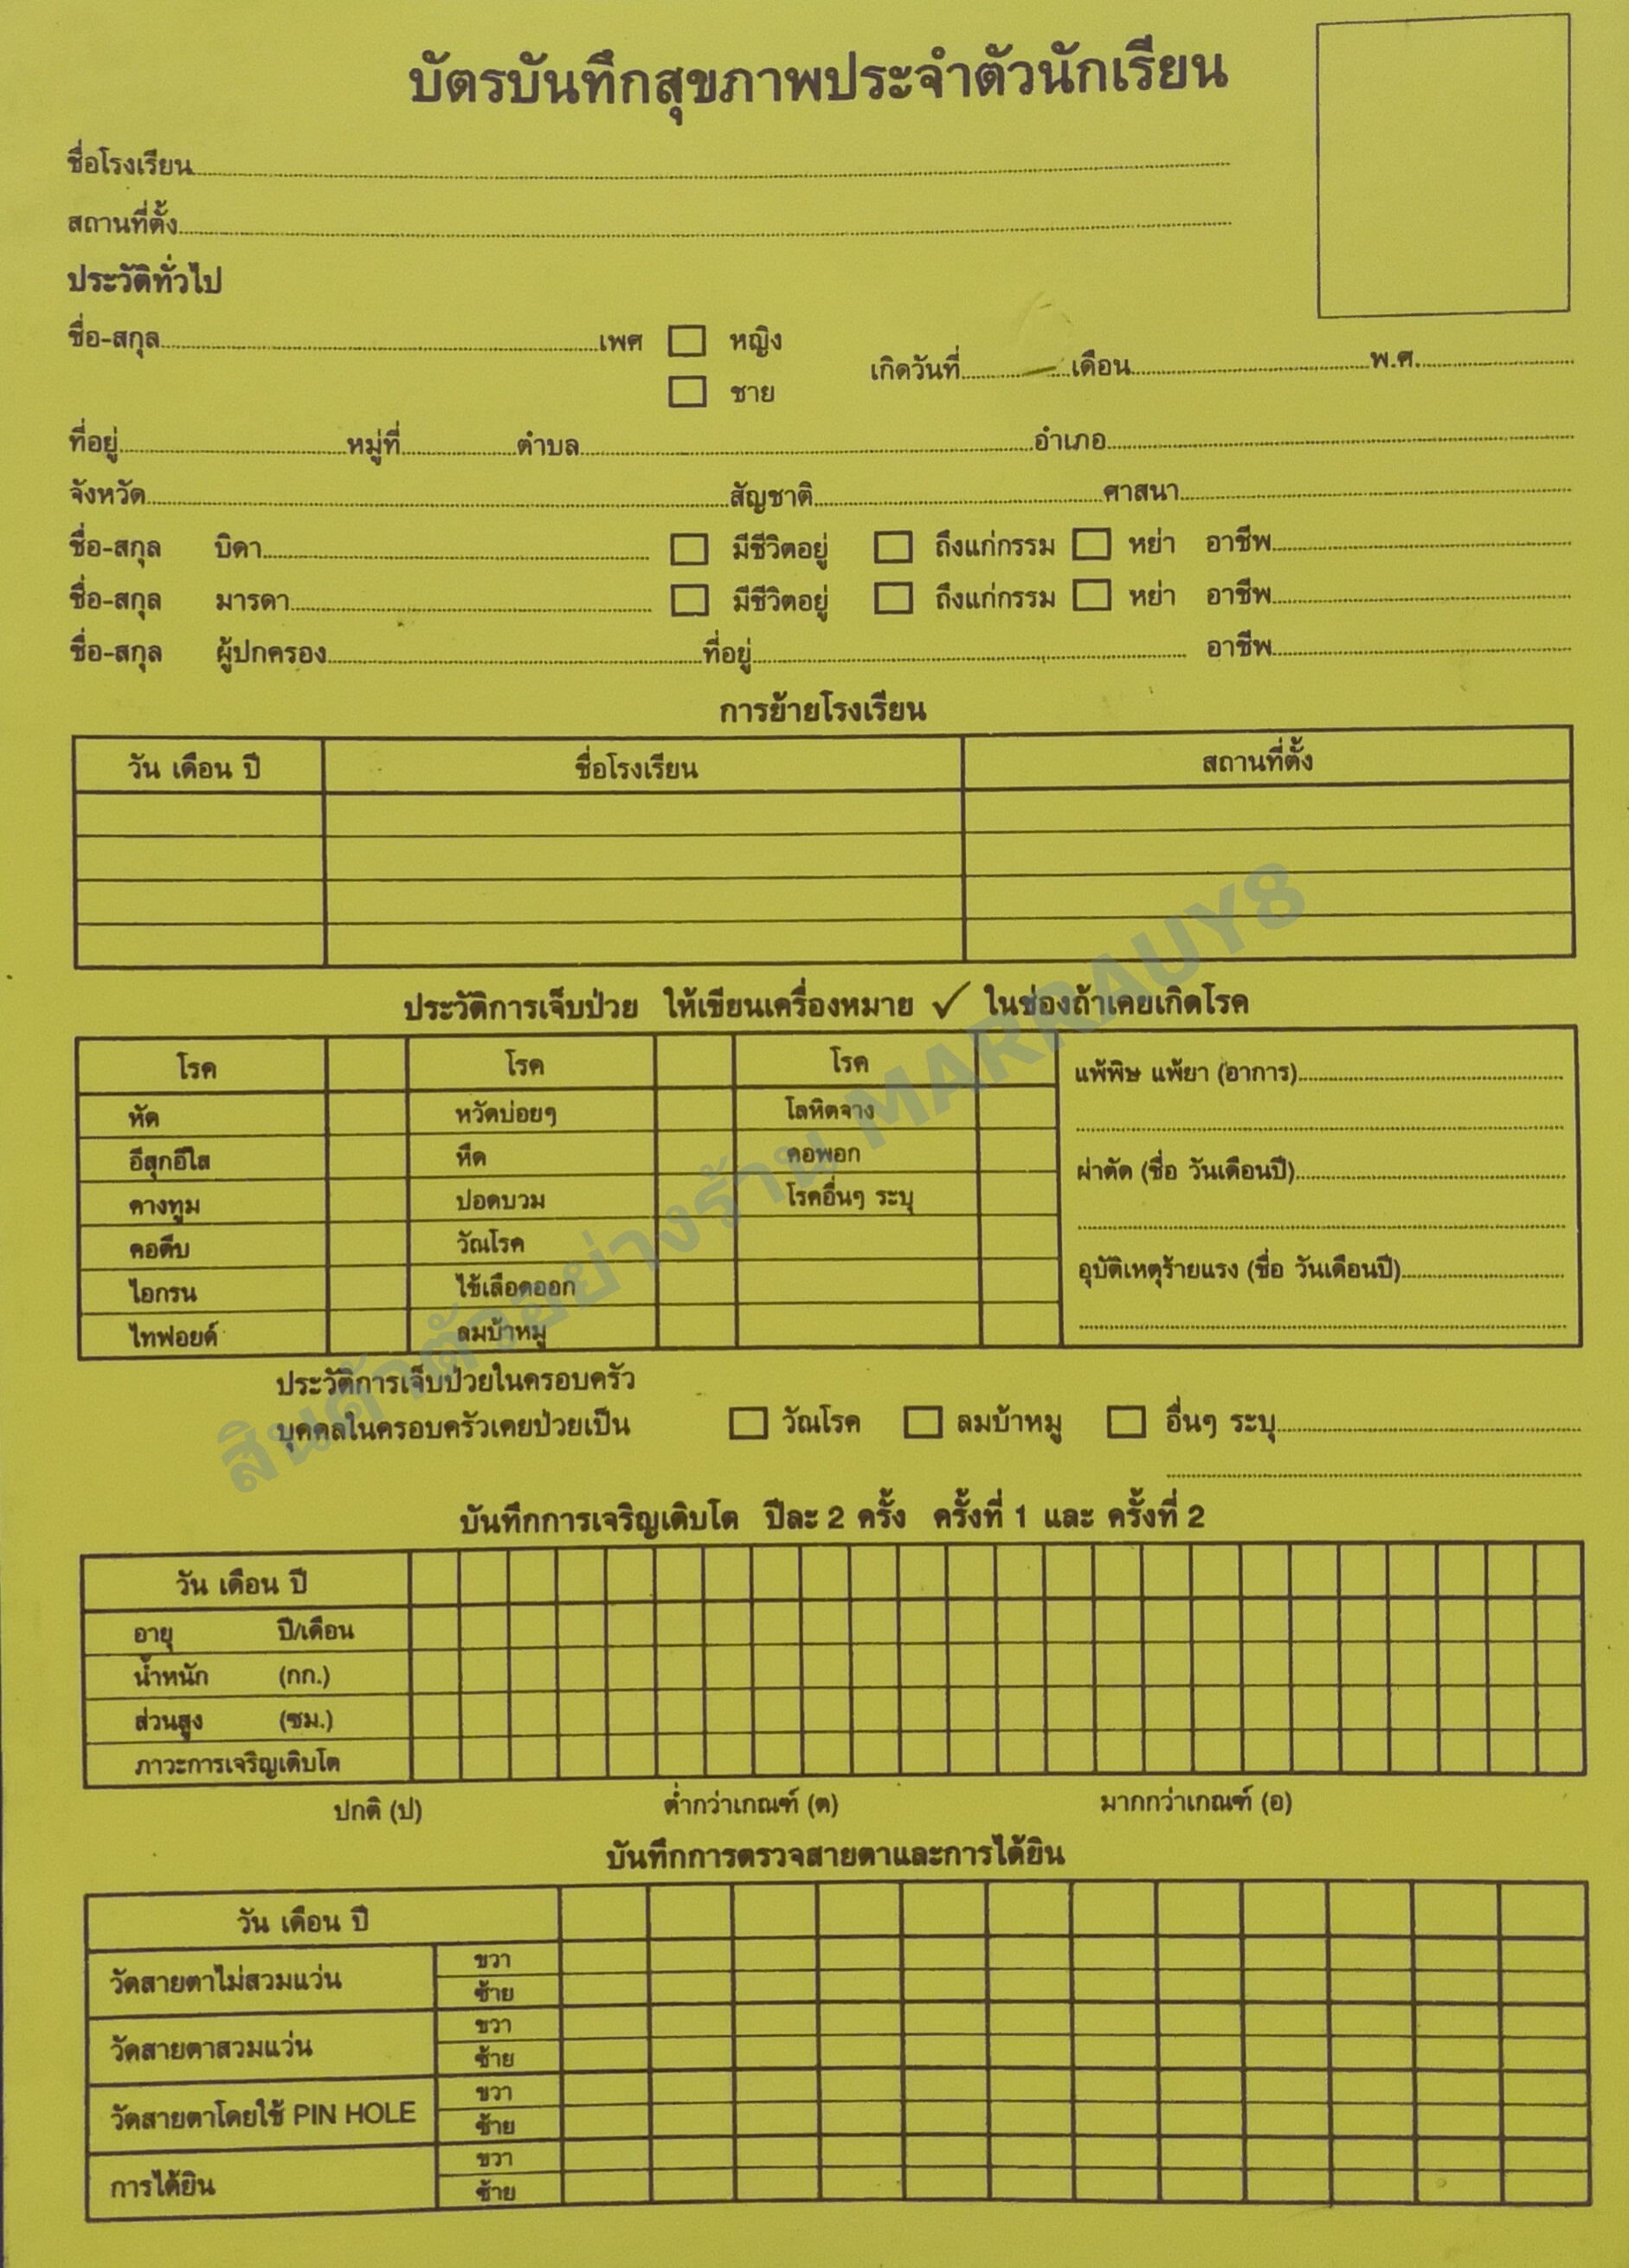 บัตรบันทึกสุขภาพประจำตัวนักเรียน
ชื่อโรงเรียน
สถานที่ตั้ง
ประวัติทั่วไป
ชื่อ-สกุล เพศ หญิง
ชาย
เกิดวันที่ เดือน พ.ศ.
ที่อยู่ หมู่ที่ ตำบล อำเภอ
จังหวัด สัญชาติ ศาสนา
ชื่อ-สกุล บิดา มีชีวิตอยู่ ถึงแก่กรรม หย่า อาชีพ
ชื่อ-สกุล มารดา มีชีวิตอยู่ ถึงแก่กรรม หย่า อาชีพ
ชื่อ-สกุล ผู้ปกครอง ที่อยู่ อาชีพ
การย้ายโรงเรียน
วัน เดือน ปี ชื่อโรงเรียน สถานที่ตั้ง
ประวัติการเจ็บป่วย ให้เขียนเครื่องหมาย ✓ ในช่องถ้าเคยเกิดโรค
โรค โรค โรค
หัด หวัดบ่อยๆ โลหิตจาง
อีสุกอีใส หืด คอพอก
คางทูม ปอดบวม โรคอื่นๆ ระบุ
คอตีบ วัณโรค
ไอกรน ไข้เลือดออก
ไทฟอยด์ ลมบ้าหมู
แพ้พิษ แพ้ยา (อาการ)
ผ่าตัด (ชื่อ วันเดือนปี)
อุบัติเหตุร้ายแรง (ชื่อ วันเดือนปี)
สินค้าตัวอย่างร้าน MARRAUY8
ประวัติการเจ็บป่วยในครอบครัว
บุคคลในครอบครัวเคยป่วยเป็น วัณโรค ลมบ้าหมู อื่นๆ ระบุ
บันทึกการเจริญเติบโต ปีละ 2 ครั้ง ครั้งที่ 1 และ ครั้งที่ 2
วัน เดือน ปี
อายุ ปี/เดือน
น้ำหนัก (กก.)
ส่วนสูง (ซม.)
ภาวะการเจริญเติบโต
ปกติ (ป) ต่ำกว่าเกณฑ์ (ต) มากกว่าเกณฑ์ (อ)
บันทึกการตรวจสายตาและการได้ยิน
วัน เดือน ปี
วัดสายตาไม่สวมแว่น ขวา
ซ้าย
วัดสายตาสวมแว่น ขวา
ซ้าย
วัดสายตาโดยใช้ PIN HOLE ขวา
ซ้าย
การได้ยิน ขวา
ซ้าย